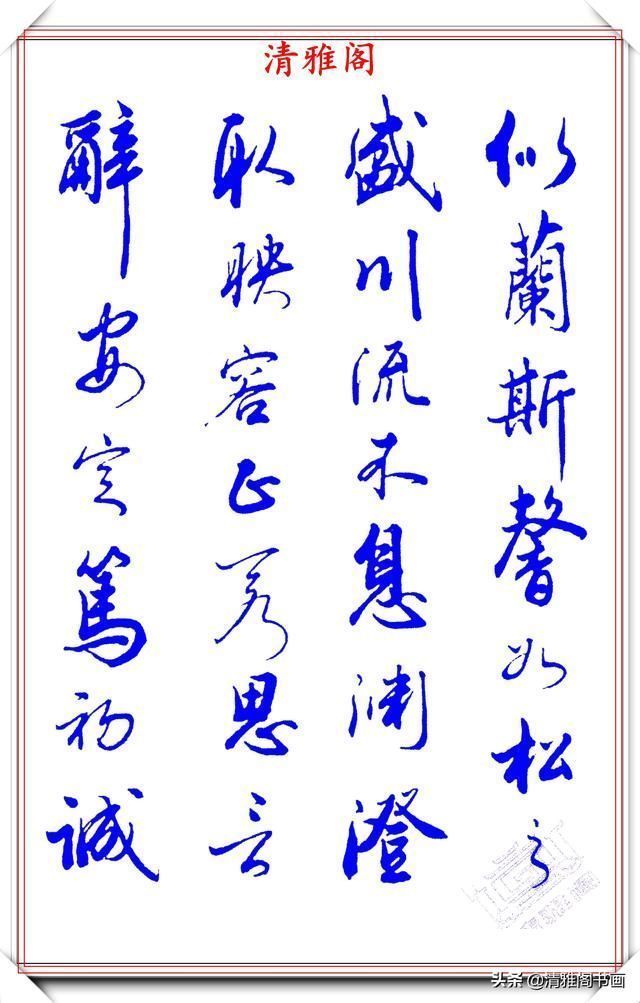 清雅阁
似蘭斯馨如松之
盛川流不息渊澄
取映容止若思言
辭安定篤初誠
头条@清雅阁书画